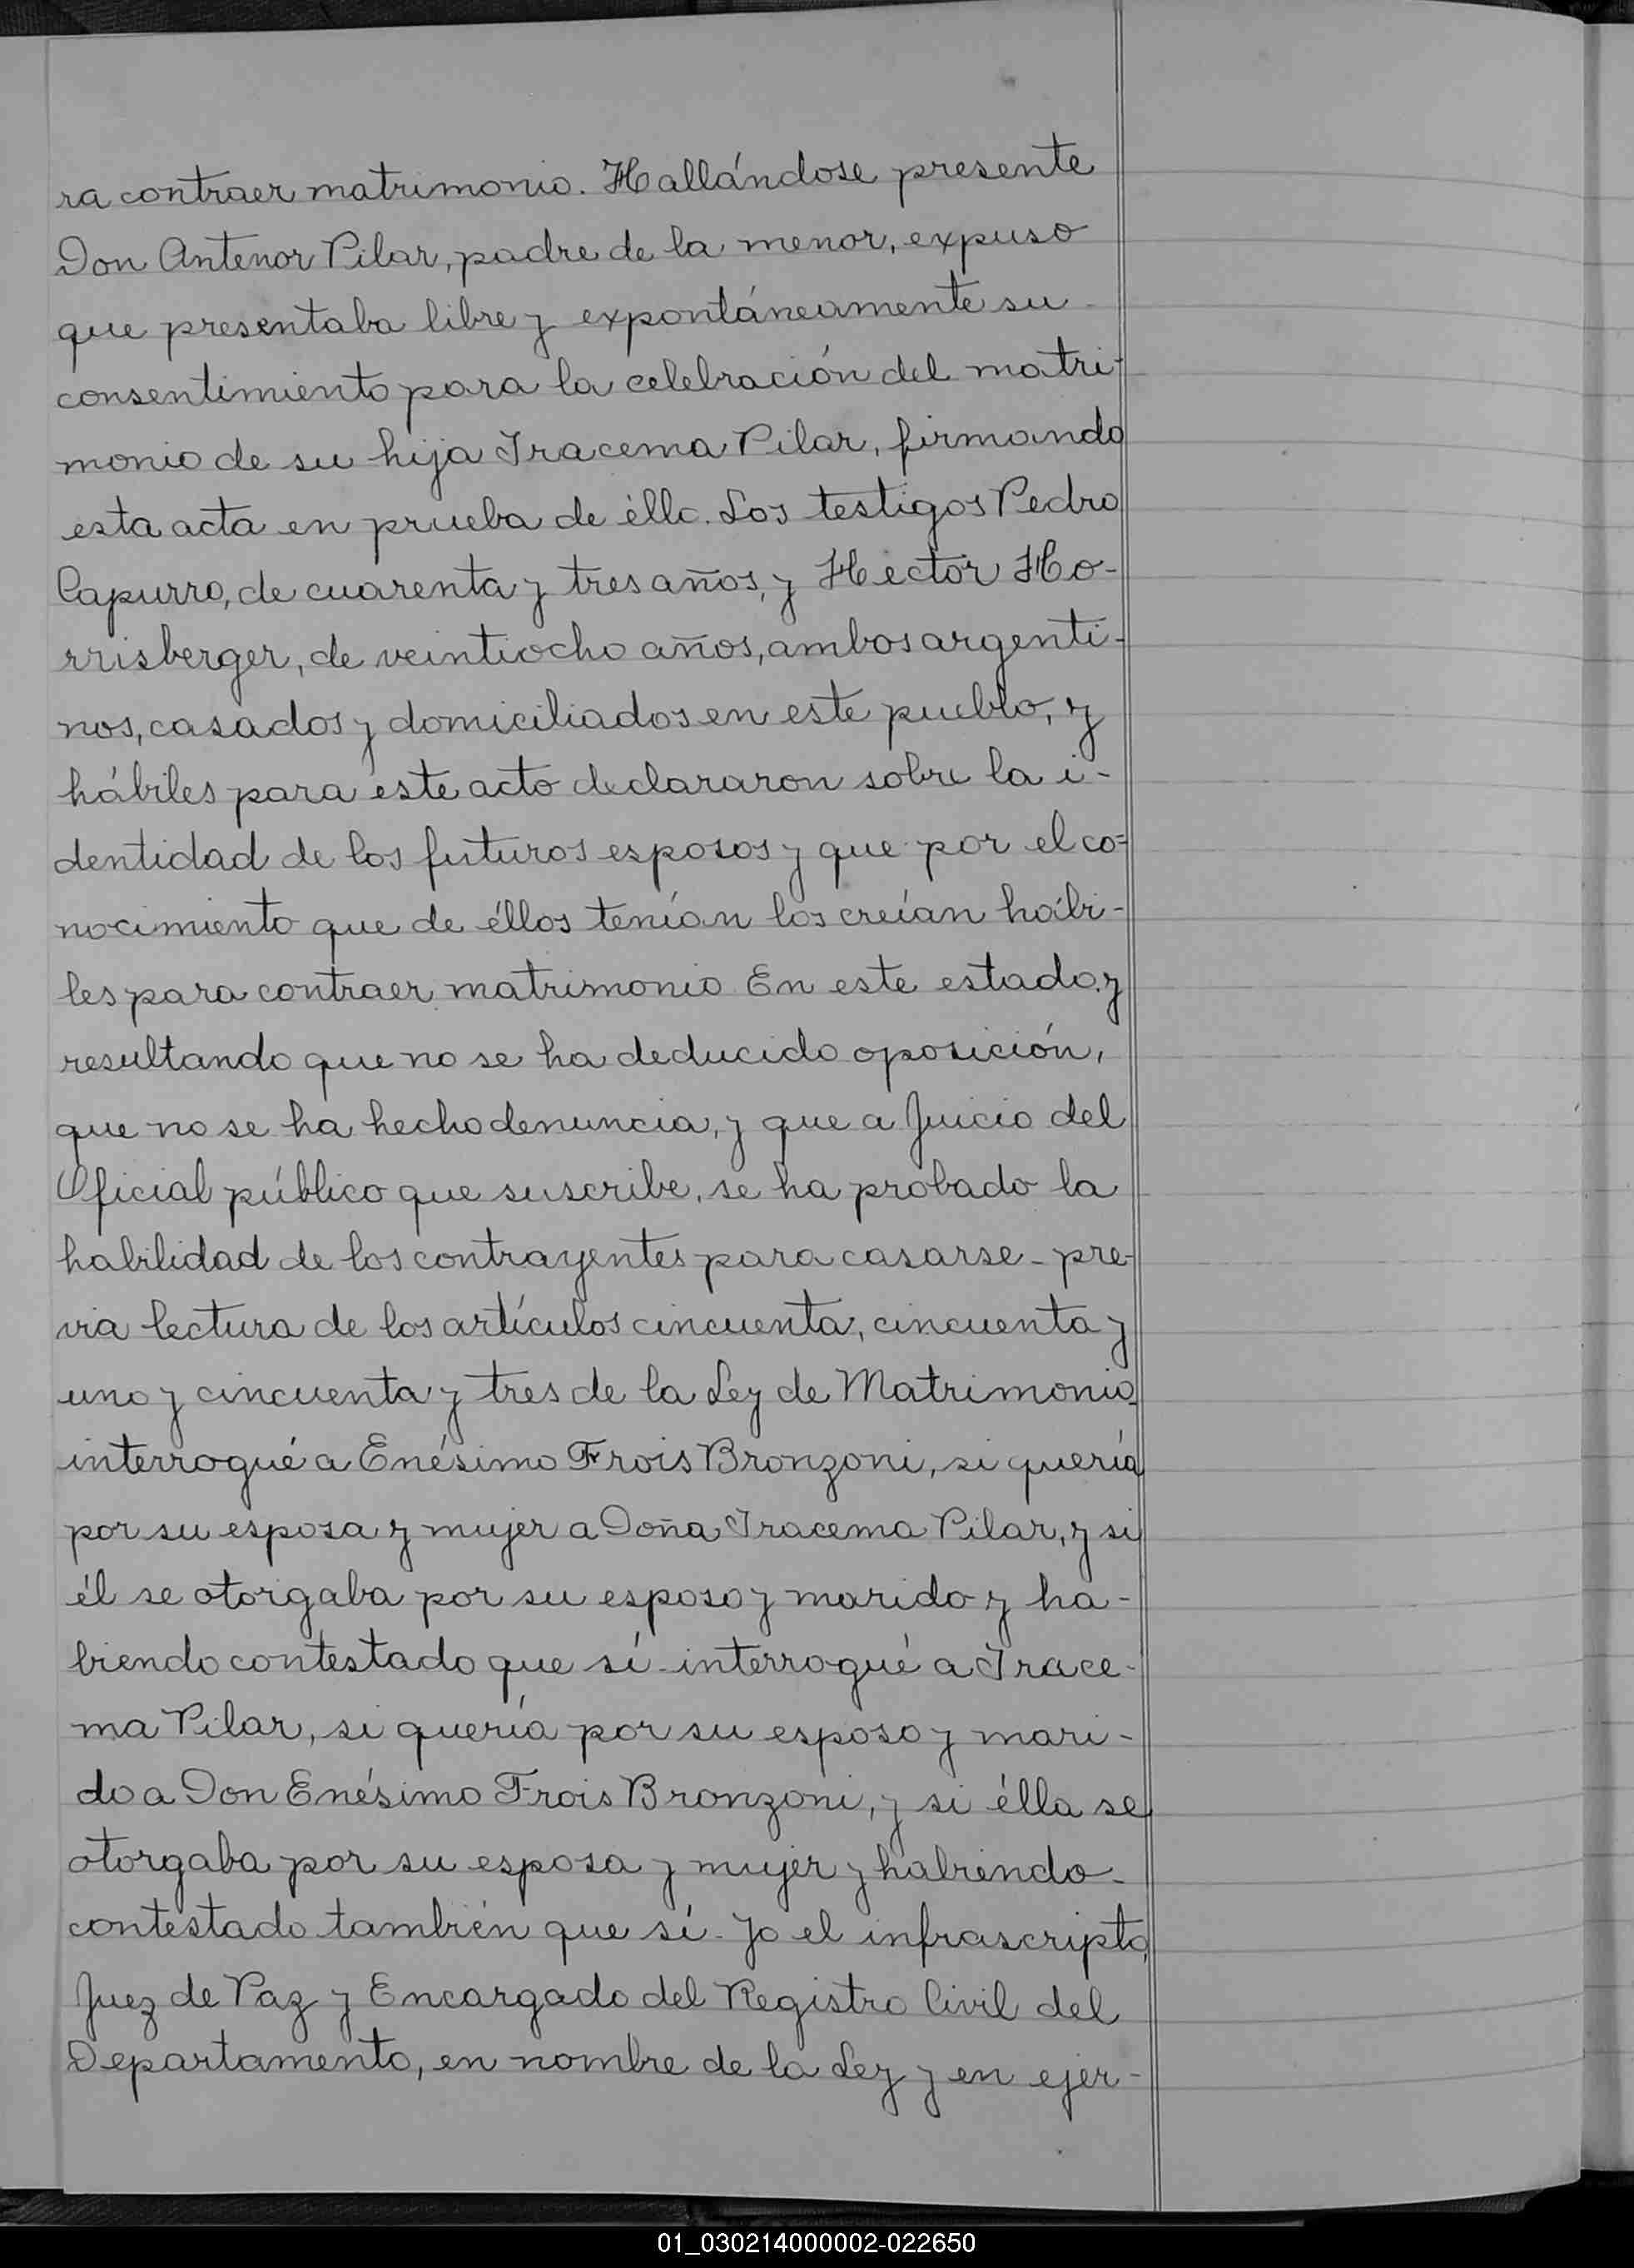 ra contraer matrimonio. Hallándose presente
Don Antenor Pilar, padre de la menor, expuso
que presentaba libre y expontáneamente su
consentimiento para la celebración del matri-
monio de su hija Iracema Pilar, firmando
esta acta en prueba de éllo. Los testigos Pedro
Capurro, de cuarenta y tres años, y Hector Ho-
rrisberger, de veintiocho años, ambos argenti-
nos, casados y domiciliados en este pueblo, y
hábiles para éste acto declararon sobre la i-
dentidad de los futuros esposos y que por el co-
nocimiento que de éllos tenían los creían hábi-
les para contraer matrimonio En este estado y
resultando que no se ha deducido oposición,
que no se ha hecho denuncia, y que a Juicio del
Oficial público que suscribe, se ha probado la
habilidad de los contrayentes para casarse - pre-
via lectura de los artículos cincuenta, cincuenta y
uno y cincuenta y tres de la Ley de Matrimonio
interrogué a Enésimo Frois Bronzoni, si quería
por su esposa y mujer a Doña Iracema Pilar, y si
él se otorgaba por su esposo y marido y ha-
biendo contestado que sí - interrogué a Irace-
ma Pilar, si quería por su esposo y mari-
do a Don Enésimo Frois Bronzoni, y si élla se
otorgaba por su esposa y mujer y habiendo
contestado también que sí - Yo el infrascripto,
Juez de Paz y Encargado del Registro Civil del
Departamento, en nombre de la Ley y en ejer-
01_030214000002-022650